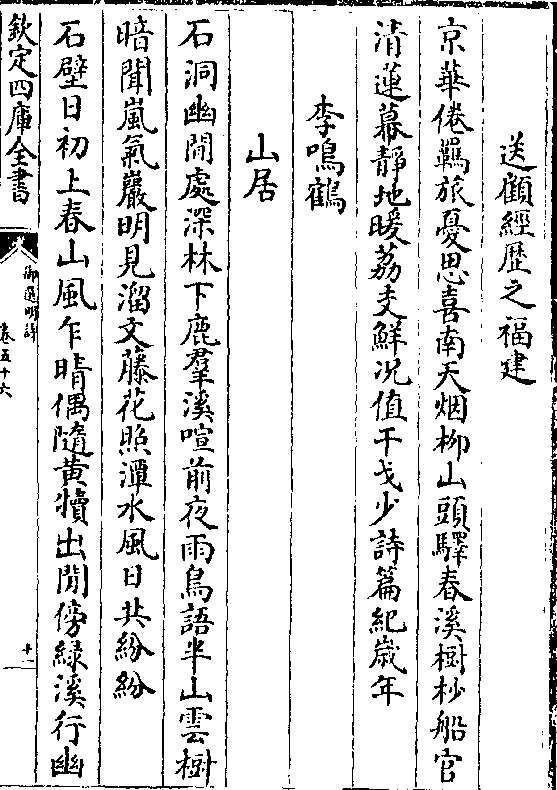 送顧經歴之福建
京華倦羈旅憂思喜南天烟栁山頭驛春溪樹杪船官
清蓮幕靜地暖荔支鮮况值干戈少詩篇紀歳年
李鳴鶴
山居
石洞幽閒處深林下鹿羣溪喧前夜雨鳥語半山雲樹
暗聞嵐氣巖明見溜文藤花照潭水風日共紛紛
石壁日初上春山風乍晴偶隨黄犢出閒傍緑溪行幽
欽定四庫全書
御選明詩
卷五十六
十一